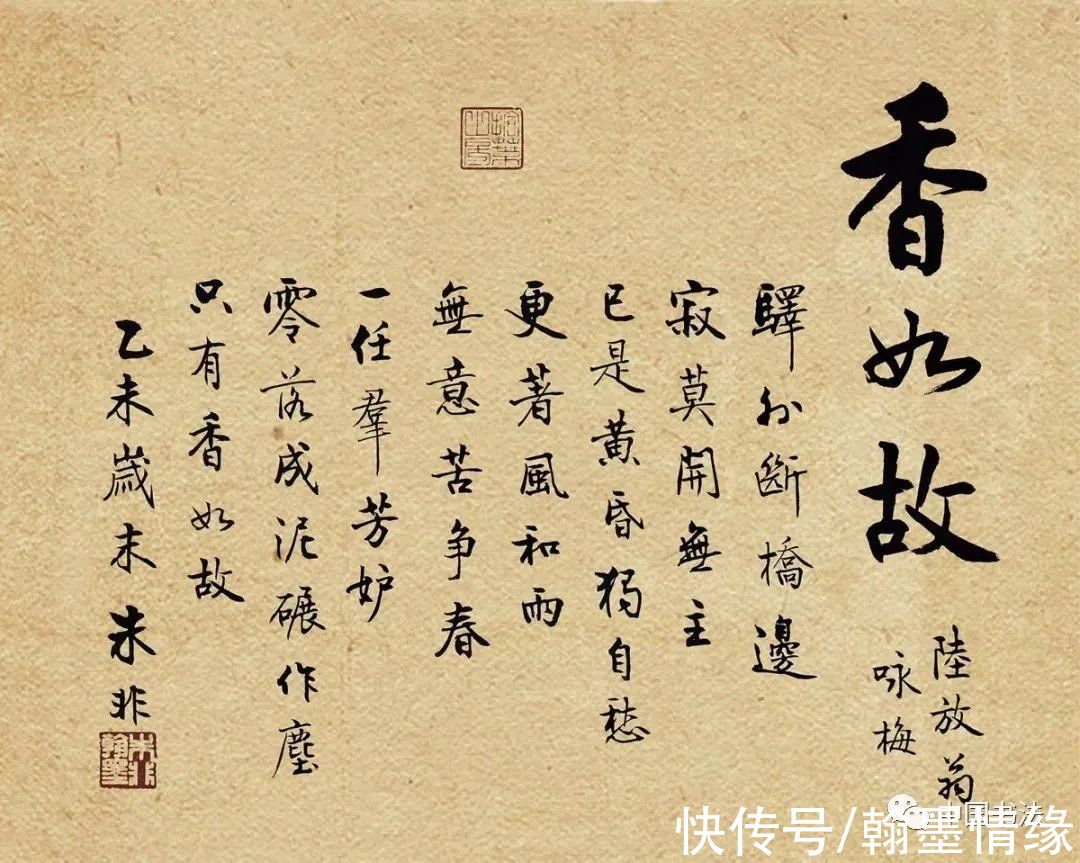 香如故
陸放翁
咏梅
驛外斷橋邊
寂莫開無主
已是黃昏獨自愁
更著風和雨
無意苦争春
一任羣芳妒
零落成泥碾作塵
只有香如故
乙未歲末 朱非
朱非翰墨
中国书法
快传号/翰墨情缘